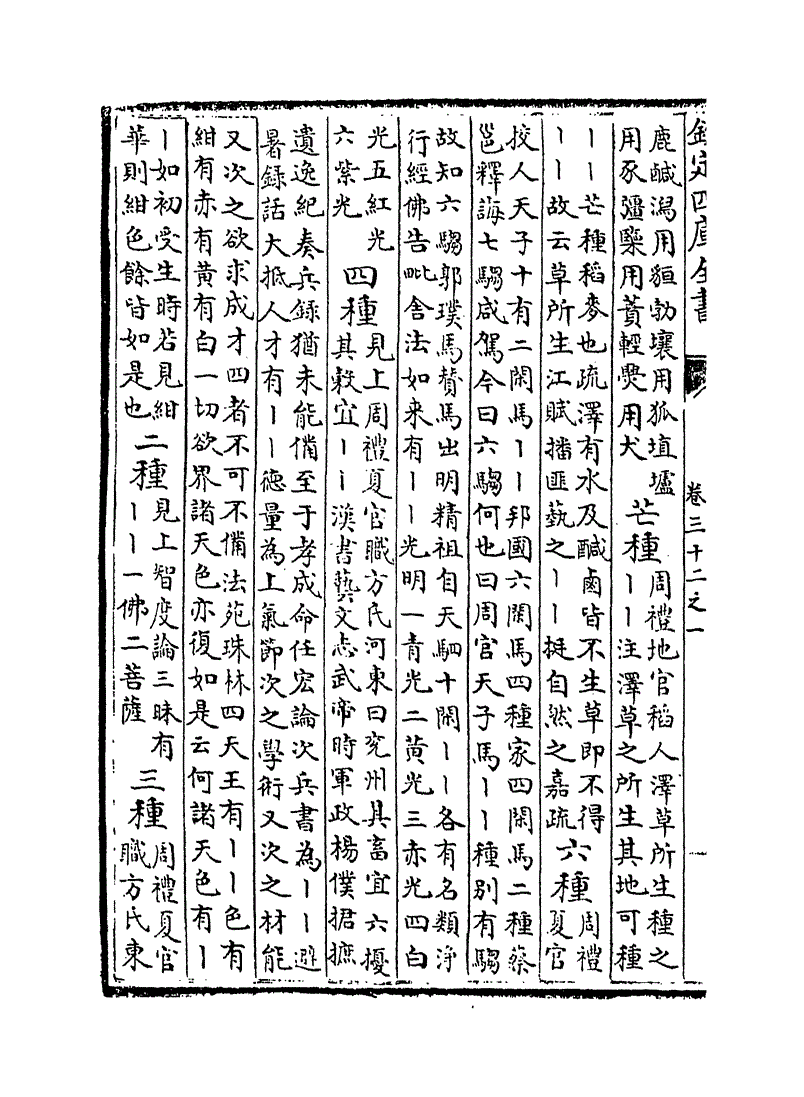 欽定四庫全書 卷三十二之一
鹿鹹潟用貆勃壤用狐埴壚
用豕彊㯺用蕡輕㷕用犬
芒種
周禮地官稻人澤草所生種之
丨丨注澤草之所生其地可種
丨丨芒種稻麥也疏澤有水及鹹鹵皆不生草即不得
丨丨故云草所生江賦播匪藝之丨丨挺自然之嘉疏
六種
周禮
夏官
挍人天子十有二閑馬丨丨邦國六閑馬四種家四閑馬二種蔡
邕釋誨七騶咸駕今曰六騶何也曰周官天子馬丨丨種別有騶
故知六騶郭璞馬贊馬出明精祖自天駟十閑丨丨各有名類浄
行經佛告毗舍法如来有丨丨光明一青光二黄光三赤光四白
光五紅光
六紫光
四種
見上周禮夏官職方氏河東曰兖州其畜宜六擾
其穀宜丨丨漢書藝文志武帝時軍政楊僕捃摭
遺逸紀奏兵録猶未能備至于孝成命任宏論次兵書為丨丨避
暑録話大抵人才有丨丨徳量為上氣節次之學術又次之材能
又次之欲求成才四者不可不備法苑珠林四天王有丨丨色有
紺有赤有黄有白一切欲界諸天色亦復如是云何諸天色有丨
丨如初受生時若見紺
華則紺色餘皆如是也
二種
見上智度論三昧有
丨丨一佛二菩薩
三種
周禮夏官
職方氏東